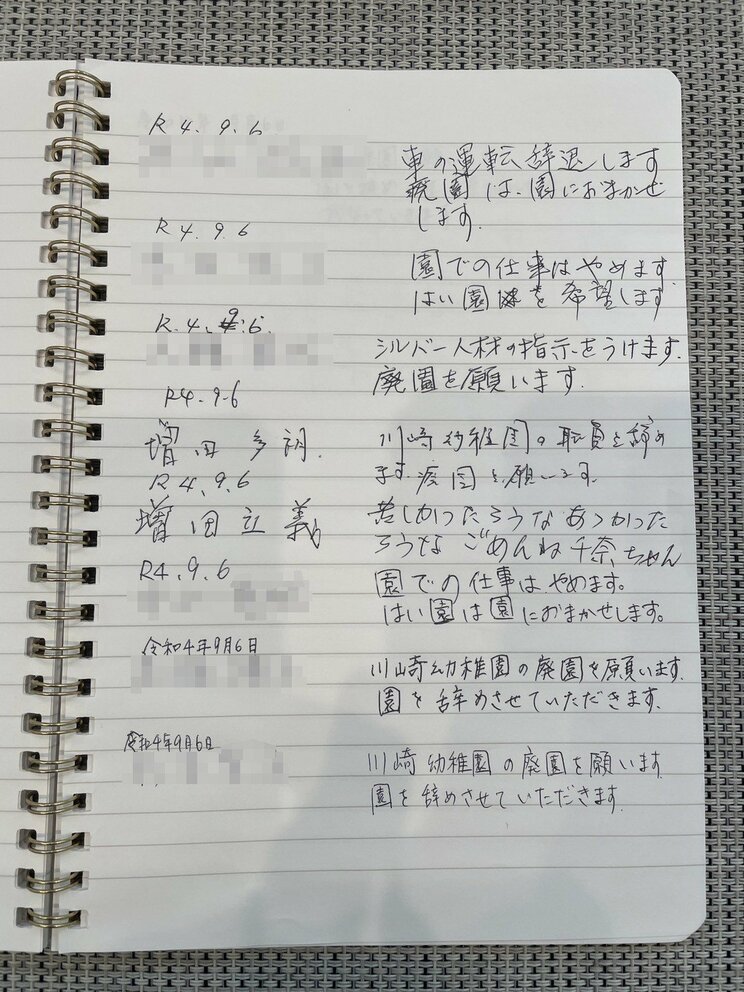 R4.9.6
車の運転辞退します
廃園は、園におまかせ
します.
R4.9.6
園での仕事はやめます
はい園を希望します
R.4.9.6.
シルバー人材の指示をうけます.
廃園を願います.
R4.9.6
増田多朗.
川崎幼稚園の職員を辞め
ます.廃園を願います.
R4.9.6
増田立義
苦しかったろうなあつかった
ろうな ごめんね千奈ちゃん
R4.9.6
園での仕事はやめます。
はい園は園におまかせします。
令和4年9月6日
川崎幼稚園の廃園を願います.
園を辞めさせていただきます.
令和4年9月6日
川崎幼稚園の廃園を願います
園を辞めさせていただきます.